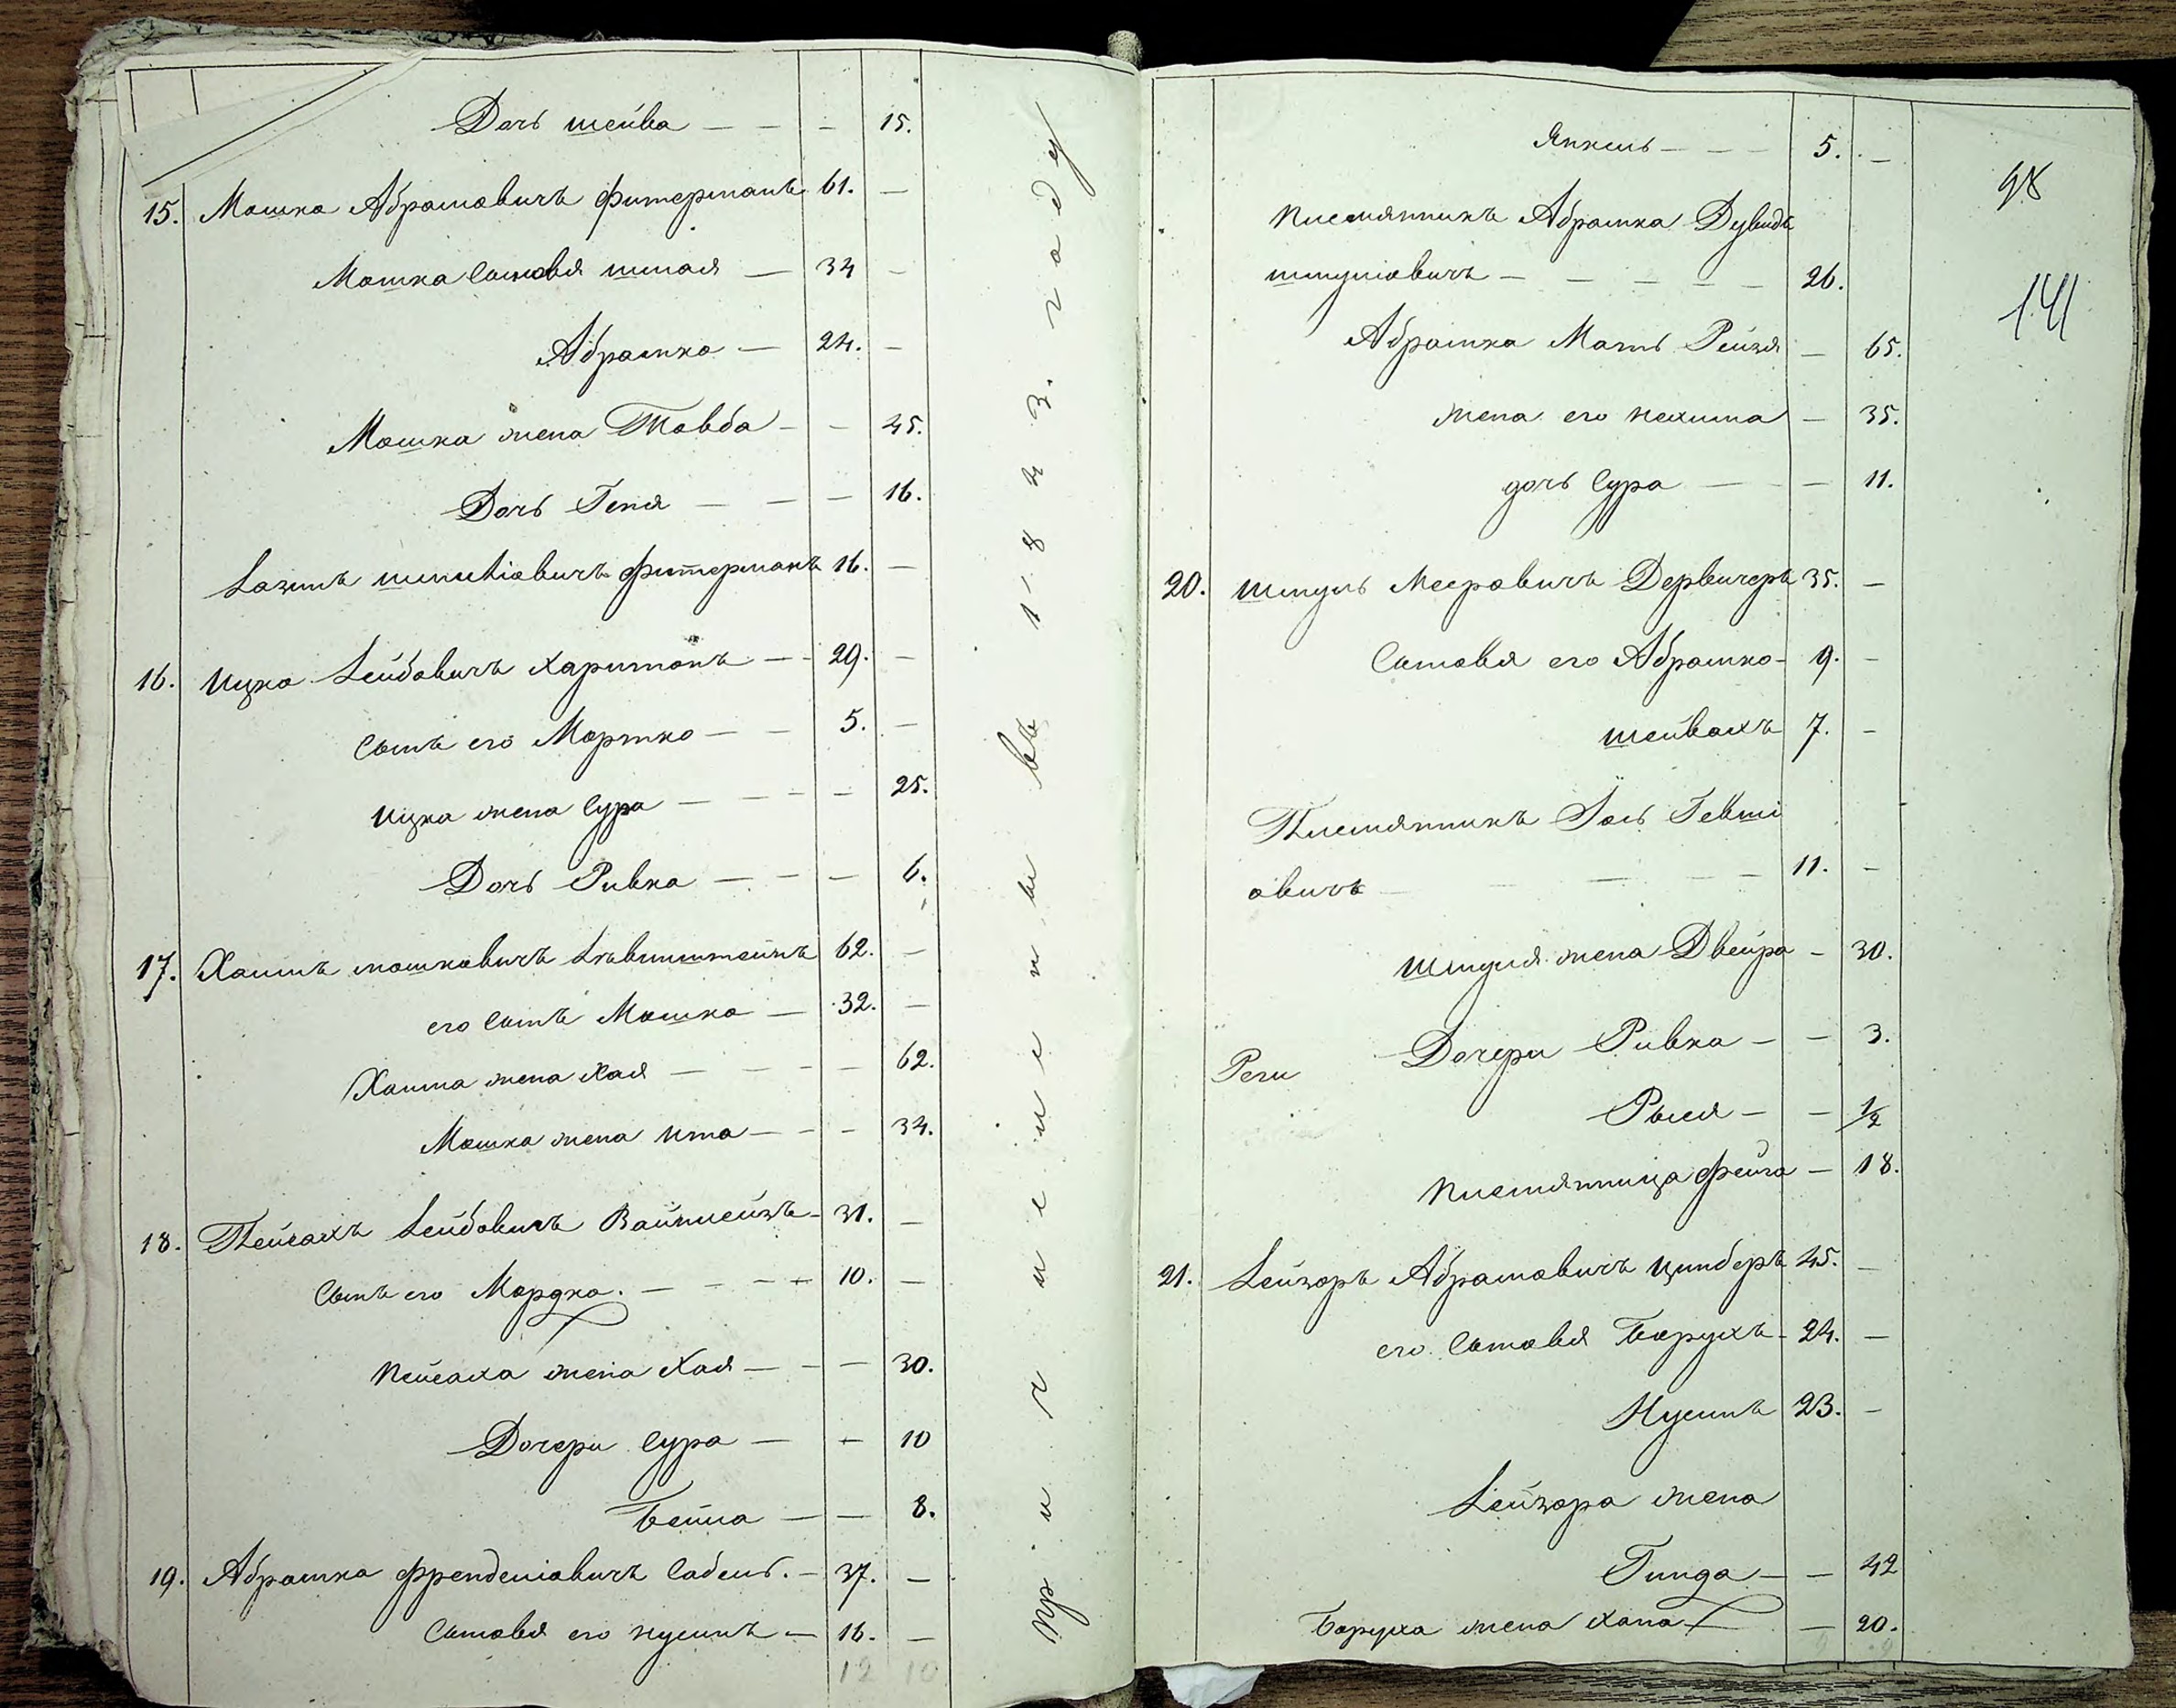 Дочь шейва — — — 15.
15. Мошко Абрамовичъ фитерманъ 61. —
Мошка Сыновья шмая — 34 —
Абрамко — 24. —
Мошка жена Товба — — 45.
Дочь Геня — — — 16.
Лазеръ фитерманъ 16. —
16. Ицко Лейбовичъ Харитонъ — 29. —
Сынъ его Мортко — — 5. —
Ицка жена Сура — — — — 25.
Дочь Ривка — — — 6.
17. Хаимъ мошковичъ 62. —
его Сынъ Мошко — 32. —
Хаима жена Хая — — — — 62.
Мошка жена Ита — — — 34.
18. Пейсахъ Лейбовичъ Вайнлейзъ 31. —
Сынъ его Мордко. — — — 10. —
Пейсаха жена Хая — — — 30.
Дочери Сура — — 10
Бейла — — 8.
19. Абрамко френделіовичъ Сабель. — 37. —
Сыновья его Нусинъ — 16. —
12 10
Причислены въ 1843. году
98
141
Янкель — — — 5. —
племянникъ Абрамко Дувидъ
шмуліовичъ — — — — — 26.
Абрамка Мать Рейзя — 65.
жена его Нехима — 35.
дочь Сура — — — 11.
20. шмуль Мееровичъ Дервичеръ 35. —
Сыновья его Абрамко — 9. —
шейвахъ 7. —
Племянникъ Іось Гевши
овичъ — — — — 11. —
Шмуля жена Двейра — 30.
Реги Дочери Ривка — — 3.
Рыся — — 1/2
племянница фейга — 18.
21. Лейзоръ Абрамовичъ цимберъ 45. —
его Сыновья Борухъ — 24. —
Нусинъ 23. —
Лейзора жена
Гинда — — 42
Боруха жена Хана — — 20.